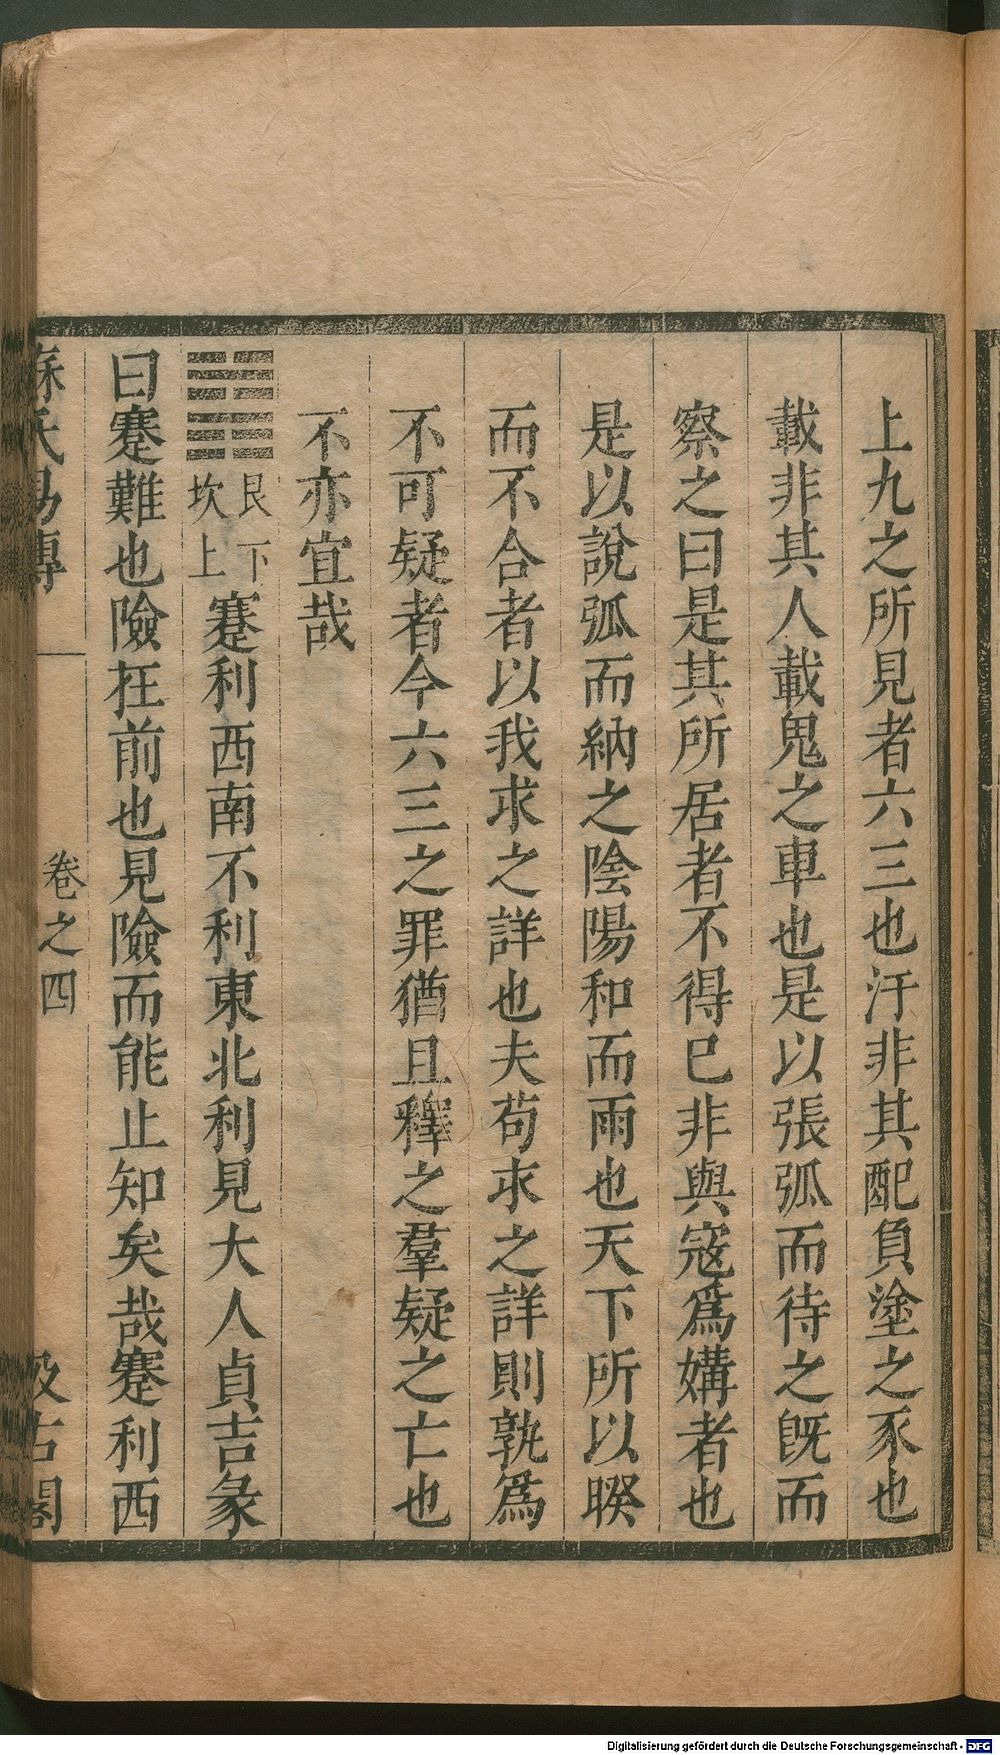 上九之所見者六三也汙非其配負塗之豕也
載非其人載鬼之車也是以張弧而待之旣而
察之曰是其所居者不得已非與寇爲媾者也
是以說弧而納之陰陽和而雨也天下所以睽
而不合者以我求之詳也夫苟求之詳則孰爲
不可疑者今六三之罪猶且釋之羣疑之亡也
不亦宜哉
䷦艮下坎上蹇利西南不利東北利見大人貞吉彖
曰蹇難也險在前也見險而能止知矣哉蹇利西
蘇氏易傳 卷之四 汲古閣
Digitalisierung gefördert durch die Deutsche Forschungsgemeinschaft - DFG